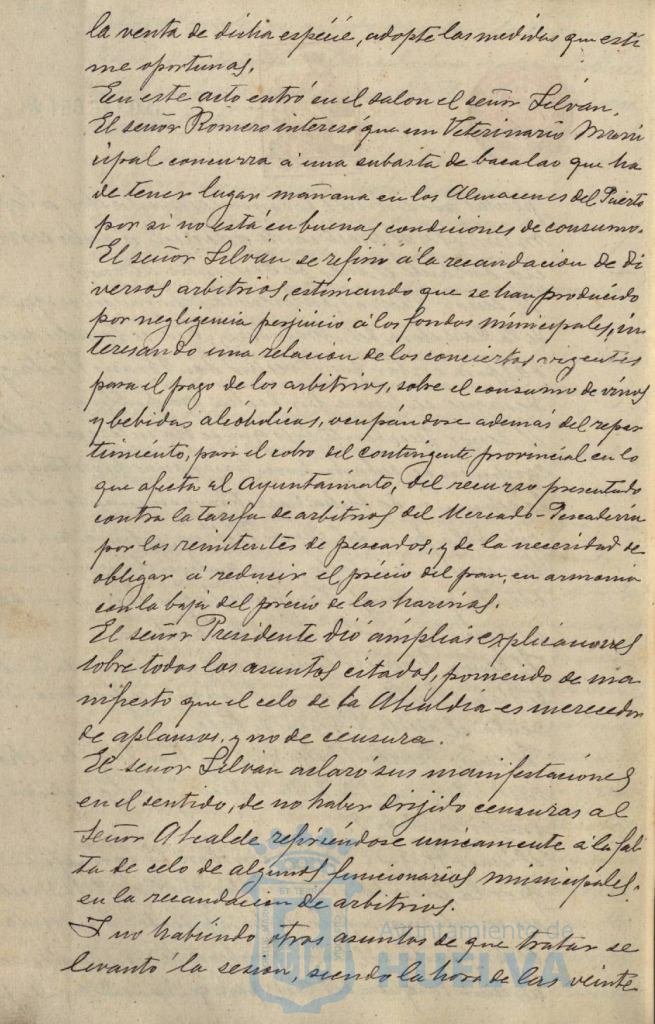 la venta de dicha espécie, adopte las medidas que esti
me oportunas.
En este acto entró en el salon el señor Silván.
El señor Romero interesó que un Veterinario Muni
cipal concurra á una subasta de bacalao que ha
de tener lugar mañana en los Almacenes del Puerto
por si no está en buenas condiciones de consumo.
El señor Silván se refirió á la recaudacion de di
versos arbitrios, estimando que se han producido
por negligencia perjuicio á los fondos municipales, in
teresando una relacion de los conciertos vigentes
para el pago de los arbitrios, sobre el consumo de vinos
y bebidas alcohólicas, ocupándose además del repar
timiento, para el cobro del contingente provincial en lo
que afecta al Ayuntamiento, del recurso presentado
contra la tarifa de arbitrios del Mercado-Pescaderia
por los remitentes de pescados, y de la necesidad de
obligar á reducir el précio del pan, en armonia
con la baja del précio de las harinas.
El señor Presidente dió ámplias explicaciones
sobre todos los asuntos citados, poniendo de ma
nifiesto que el celo de la Alcaldia es merecedor
de aplausos, y no de censura.
El señor Silván aclaró sus manifestaciones
en el sentido, de no haber dirijido censuras al
señor Alcalde refiriéndose unicamente á la fal
ta de celo de algunos funcionarios municipales.
en la recaudacion de arbitrios.
Y no habiendo otros asuntos de que tratar se
levantó la sesion, siendo la hora de las veinte
Ayuntamiento de
HUELVA